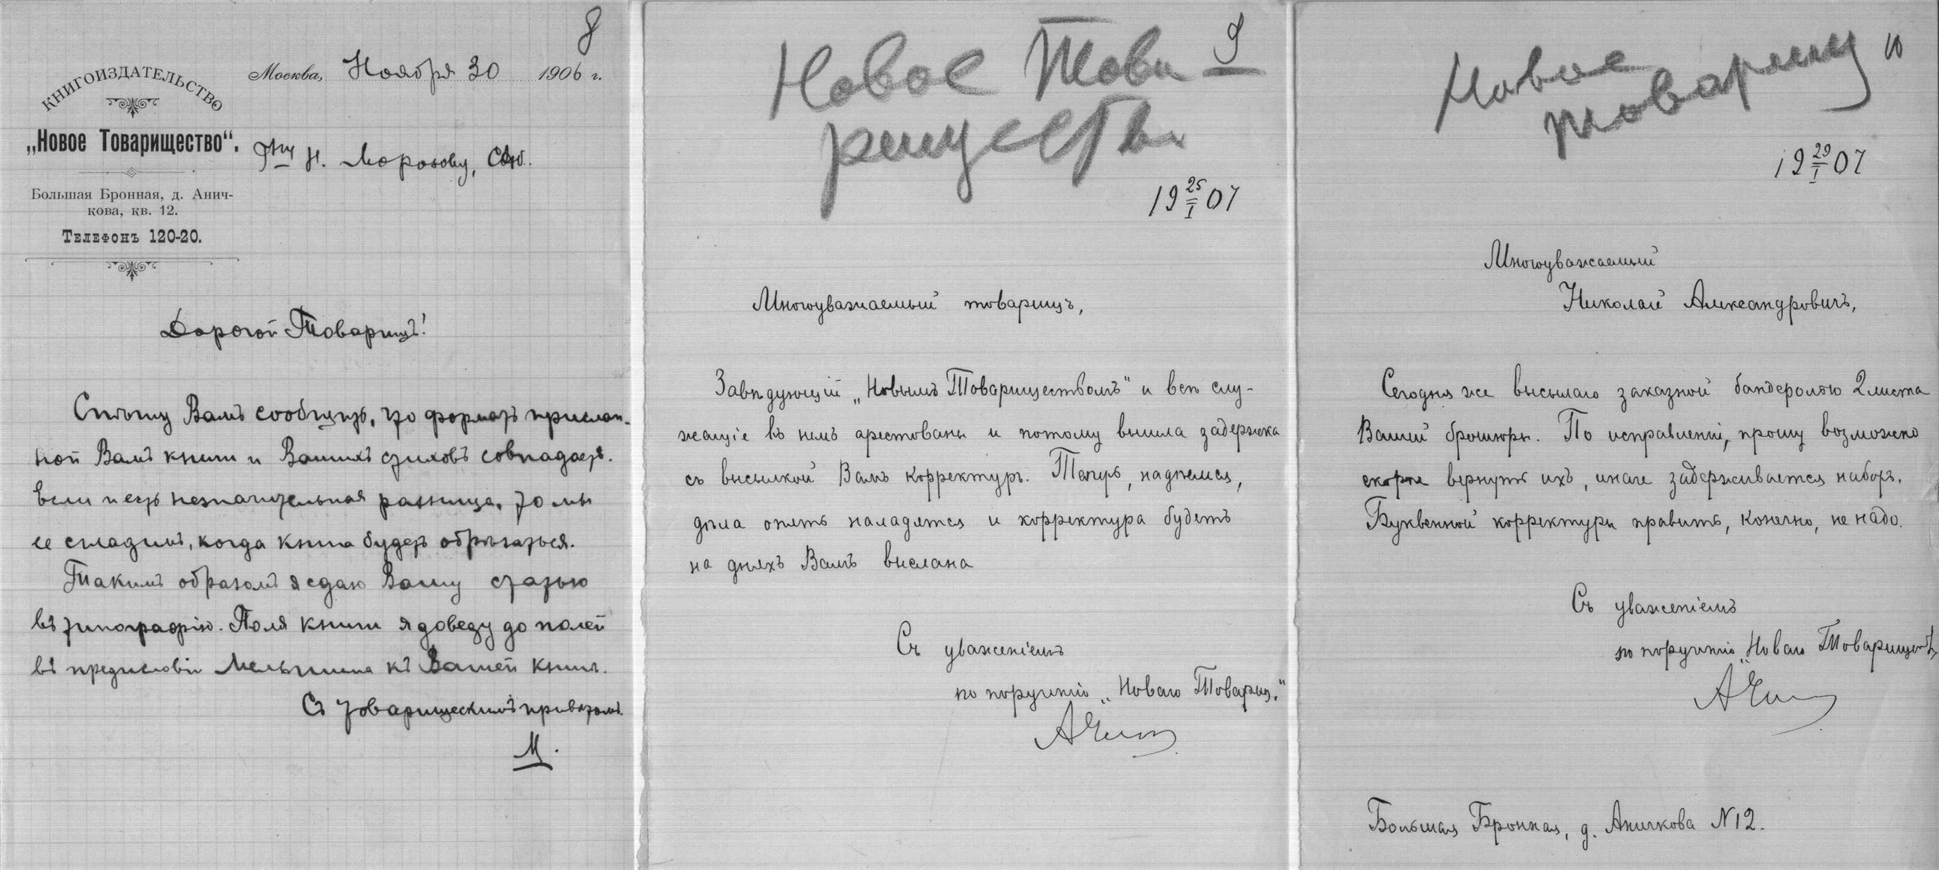 8
КНИГОИЗДАТЕЛЬСТВО
„Новое Товарищество“.
Большая Бронная, д. Анич-
кова, кв. 12.
Телефонъ 120-20.
Москва, Ноября 30 1906 г.
Гну Н. Морозову, СПб.
Дорогой Товарищъ!
Спѣшу Вамъ сообщить, что форматъ прислан-
ной Вамъ книги и Вашихъ стиховъ совпадаетъ.
Если и есть незначительная разница, то мы
ее сгладимъ, когда книга будетъ обрѣзаться.
Такимъ образомъ я сдаю Вашу статью
въ типографію. Поля книги я доведу до полей
въ предисловіи Мельшина къ Вашей книгѣ.
Съ товарищескимъ привѣтомъ.
М.
9
Новое Това
рищество
19 25/I 07
Многоуважаемый товарищъ,
Завѣдующій „Новымъ Товариществомъ“ и всѣ слу-
жащіе въ немъ арестованы и потому вышла задержка
съ высылкой Вамъ корректуръ. Теперь, надѣемся,
дѣла опять наладятся и корректура будетъ
на дняхъ Вамъ выслана
Съ уваженіемъ
по порученію „Новаго Товарищ.“
10
Новое
товарищ
19 29/I 07
Многоуважаемый
Николай Александровичъ,
Сегодня же высылаю заказной бандеролью 2 листа
Вашей брошюры. По исправленіи, прошу возможно
скорѣе вернуть ихъ, иначе задерживается наборъ.
Буквенной корректуры править, конечно, не надо.
Съ уваженіемъ
по порученію „Новаго Товарищест.
Большая Бронная, д. Аничкова N 12.